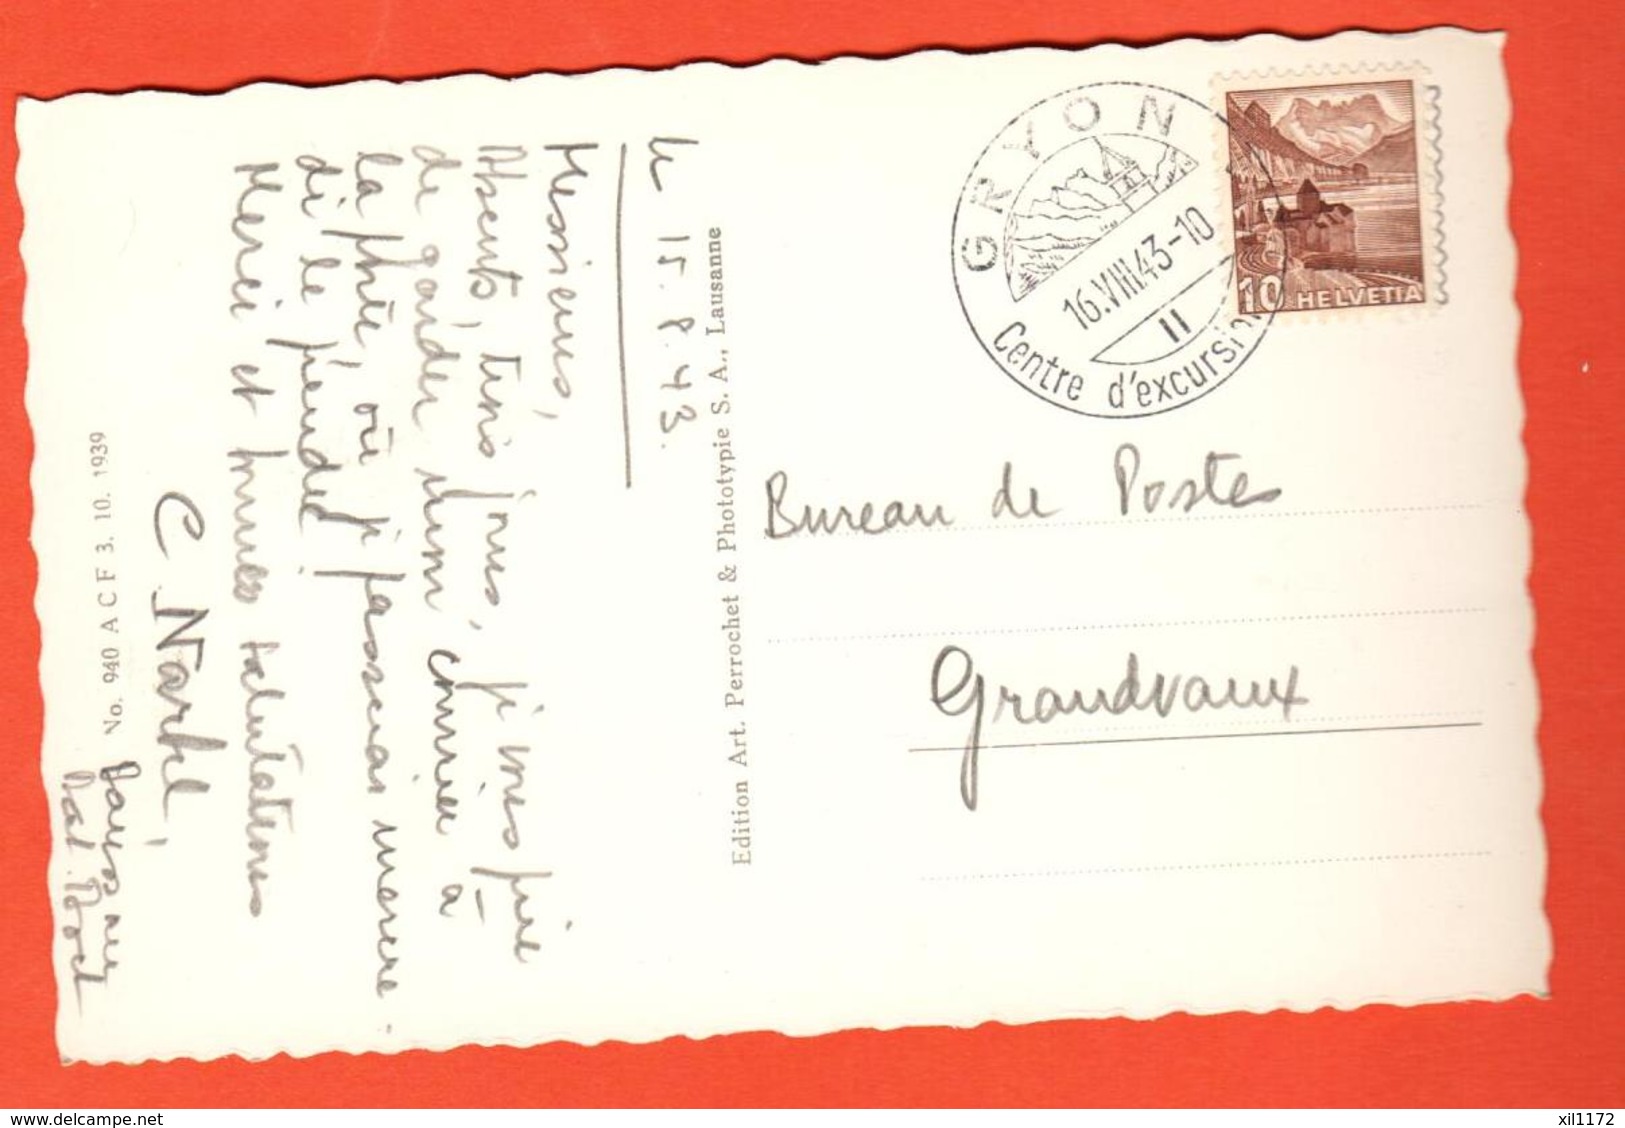 le 15.8.43.
Messieurs,
Absents, trois jours, je vous prie
de garder mon courrier à
la poste, où je passerai mercre-
di le prendre!
Merci et bonnes salutations
C. Nartel,
No. 940 A C F 3. 10. 1939
Edition Art. Perrochet & Phototypie S. A., Lausanne
GRYON
16.VIII.43-10
II
Centre d'excursion
10 HELVETIA
Bureau de Postes
Grandvaux
delcampe.net
xil1172